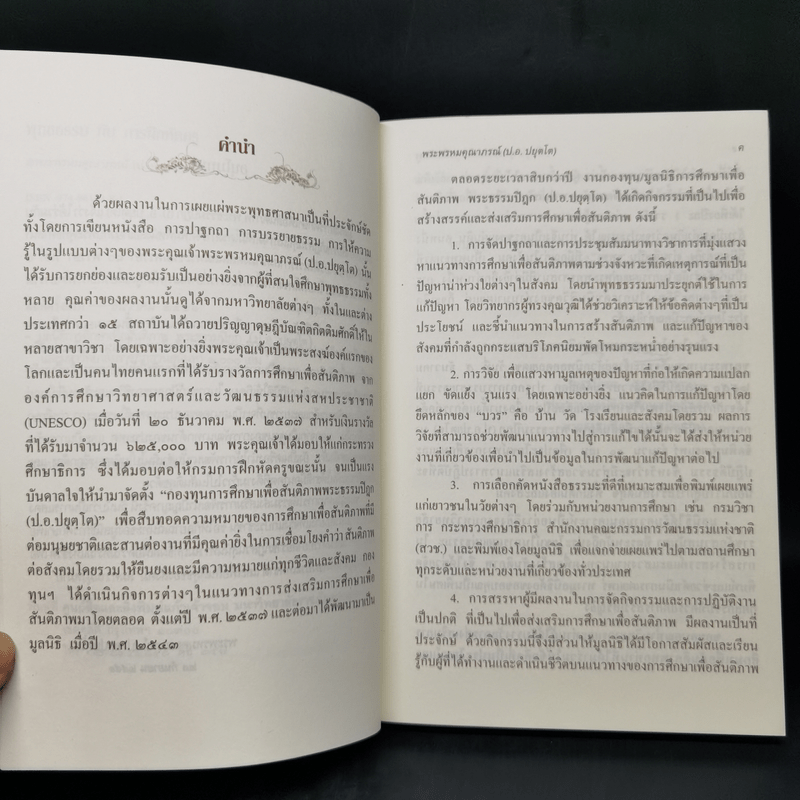 คำนำ
ด้วยผลงานในการเผยแผ่พระพุทธศาสนาเป็นที่ประจักษ์ชัด
ทั้งโดยการเขียนหนังสือ การปาฐกถา การบรรยายธรรม การให้ความ
รู้ในรูปแบบต่างๆของพระคุณเจ้าพระพรหมคุณาภรณ์ (ป.อ.ปยุตฺโต) นั้น
ได้รับการยกย่องและยอมรับเป็นอย่างยิ่งจากผู้ที่สนใจศึกษาพุทธธรรมทั้ง
หลาย คุณค่าของผลงานนั้นดูได้จากมหาวิทยาลัยต่างๆ ทั้งในและต่าง
ประเทศกว่า ๑๕ สถาบันได้ถวายปริญญาดุษฎีบัณฑิตกิตติมศักดิ์ให้ใน
หลายสาขาวิชา โดยเฉพาะอย่างยิ่งพระคุณเจ้าเป็นพระสงฆ์องค์แรกของ
โลกและเป็นคนไทยคนแรกที่ได้รับรางวัลการศึกษาเพื่อสันติภาพ จาก
องค์การศึกษาวิทยาศาสตร์และวัฒนธรรมแห่งสหประชาชาติ
(UNESCO) เมื่อวันที่ ๒๐ ธันวาคม พ.ศ. ๒๕๓๗ สำหรับเงินรางวัล
ที่ได้รับมาจำนวน ๖๒๕,๐๐๐ บาท พระคุณเจ้าได้มอบให้แก่กระทรวง
ศึกษาธิการ ซึ่งได้มอบต่อให้กรมการฝึกหัดครูขณะนั้น จนเป็นแรง
บันดาลใจให้นำมาจัดตั้ง “กองทุนการศึกษาเพื่อสันติภาพพระธรรมปิฎก
(ป.อ.ปยุตฺโต)” เพื่อสืบทอดความหมายของการศึกษาเพื่อสันติภาพที่มี
ต่อมนุษยชาติและสานต่องานที่มีคุณค่ายิ่งในการเชื่อมโยงคำว่าสันติภาพ
ต่อสังคมโดยรวมให้ยืนยงและมีความหมายแก่ทุกชีวิตและสังคม กอง
ทุนฯ ได้ดำเนินกิจการต่างๆในแนวทางการส่งเสริมการศึกษาเพื่อ
สันติภาพมาโดยตลอด ตั้งแต่ปี พ.ศ. ๒๕๓๗ และต่อมาได้พัฒนามาเป็น
มูลนิธิ เมื่อปี พ.ศ. ๒๕๔๓
พระพรหมคุณาภรณ์ (ป.อ. ปยุตฺโต)
ค
ตลอดระยะเวลาสิบกว่าปี งานกองทุน/มูลนิธิการศึกษาเพื่อ
สันติภาพ พระธรรมปิฎก (ป.อ.ปยุตฺโต) ได้เกิดกิจกรรมที่เป็นไปเพื่อ
สร้างสรรค์และส่งเสริมการศึกษาเพื่อสันติภาพ ดังนี้
1. การจัดปาฐกถาและการประชุมสัมมนาทางวิชาการที่มุ่งแสวง
หาแนวทางการศึกษาเพื่อสันติภาพตามช่วงจังหวะที่เกิดเหตุการณ์ที่เป็น
ปัญหาน่าห่วงใยต่างๆในสังคม โดยนำพุทธธรรมมาประยุกต์ใช้ในการ
แก้ปัญหา โดยวิทยากรผู้ทรงคุณวุฒิได้ช่วยวิเคราะห์ให้ข้อคิดต่างๆที่เป็น
ประโยชน์ และชี้นำแนวทางในการสร้างสันติภาพ และแก้ปัญหาของ
สังคมที่กำลังถูกกระแสบริโภคนิยมพัดโหมกระหน่ำอย่างรุนแรง
2. การวิจัย เพื่อแสวงหามูลเหตุของปัญหาที่ก่อให้เกิดความแปลก
แยก ขัดแย้ง รุนแรง โดยเฉพาะอย่างยิ่ง แนวคิดในการแก้ปัญหาโดย
ยึดหลักของ “บวร” คือ บ้าน วัด โรงเรียนและสังคมโดยรวม ผลการ
วิจัยที่สามารถช่วยพัฒนาแนวทางไปสู่การแก้ไขได้นั้นจะได้ส่งให้หน่วย
งานที่เกี่ยวข้องเพื่อนำไปเป็นข้อมูลในการพัฒนาแก้ปัญหาต่อไป
3. การเลือกคัดหนังสือธรรมะที่ดีที่เหมาะสมเพื่อพิมพ์เผยแพร่
แก่เยาวชนในวัยต่างๆ โดยร่วมกับหน่วยงานการศึกษา เช่น กรมวิชา
การ กระทรวงศึกษาธิการ สำนักงานคณะกรรมการวัฒนธรรมแห่งชาติ
(สวช.) และพิมพ์เองโดยมูลนิธิ เพื่อแจกจ่ายเผยแพร่ไปตามสถานศึกษา
ทุกระดับและหน่วยงานที่เกี่ยวข้องทั่วประเทศ
4. การสรรหาผู้มีผลงานในการจัดกิจกรรมและการปฏิบัติงาน
เป็นปกติ ที่เป็นไปเพื่อส่งเสริมการศึกษาเพื่อสันติภาพ มีผลงานเป็นที่
ประจักษ์ ด้วยกิจกรรมนี้จึงมีส่วนให้มูลนิธิได้มีโอกาสสัมผัสและเรียน
รู้กับผู้ที่ได้ทำงานและดำเนินชีวิตบนแนวทางของการศึกษาเพื่อสันติภาพ